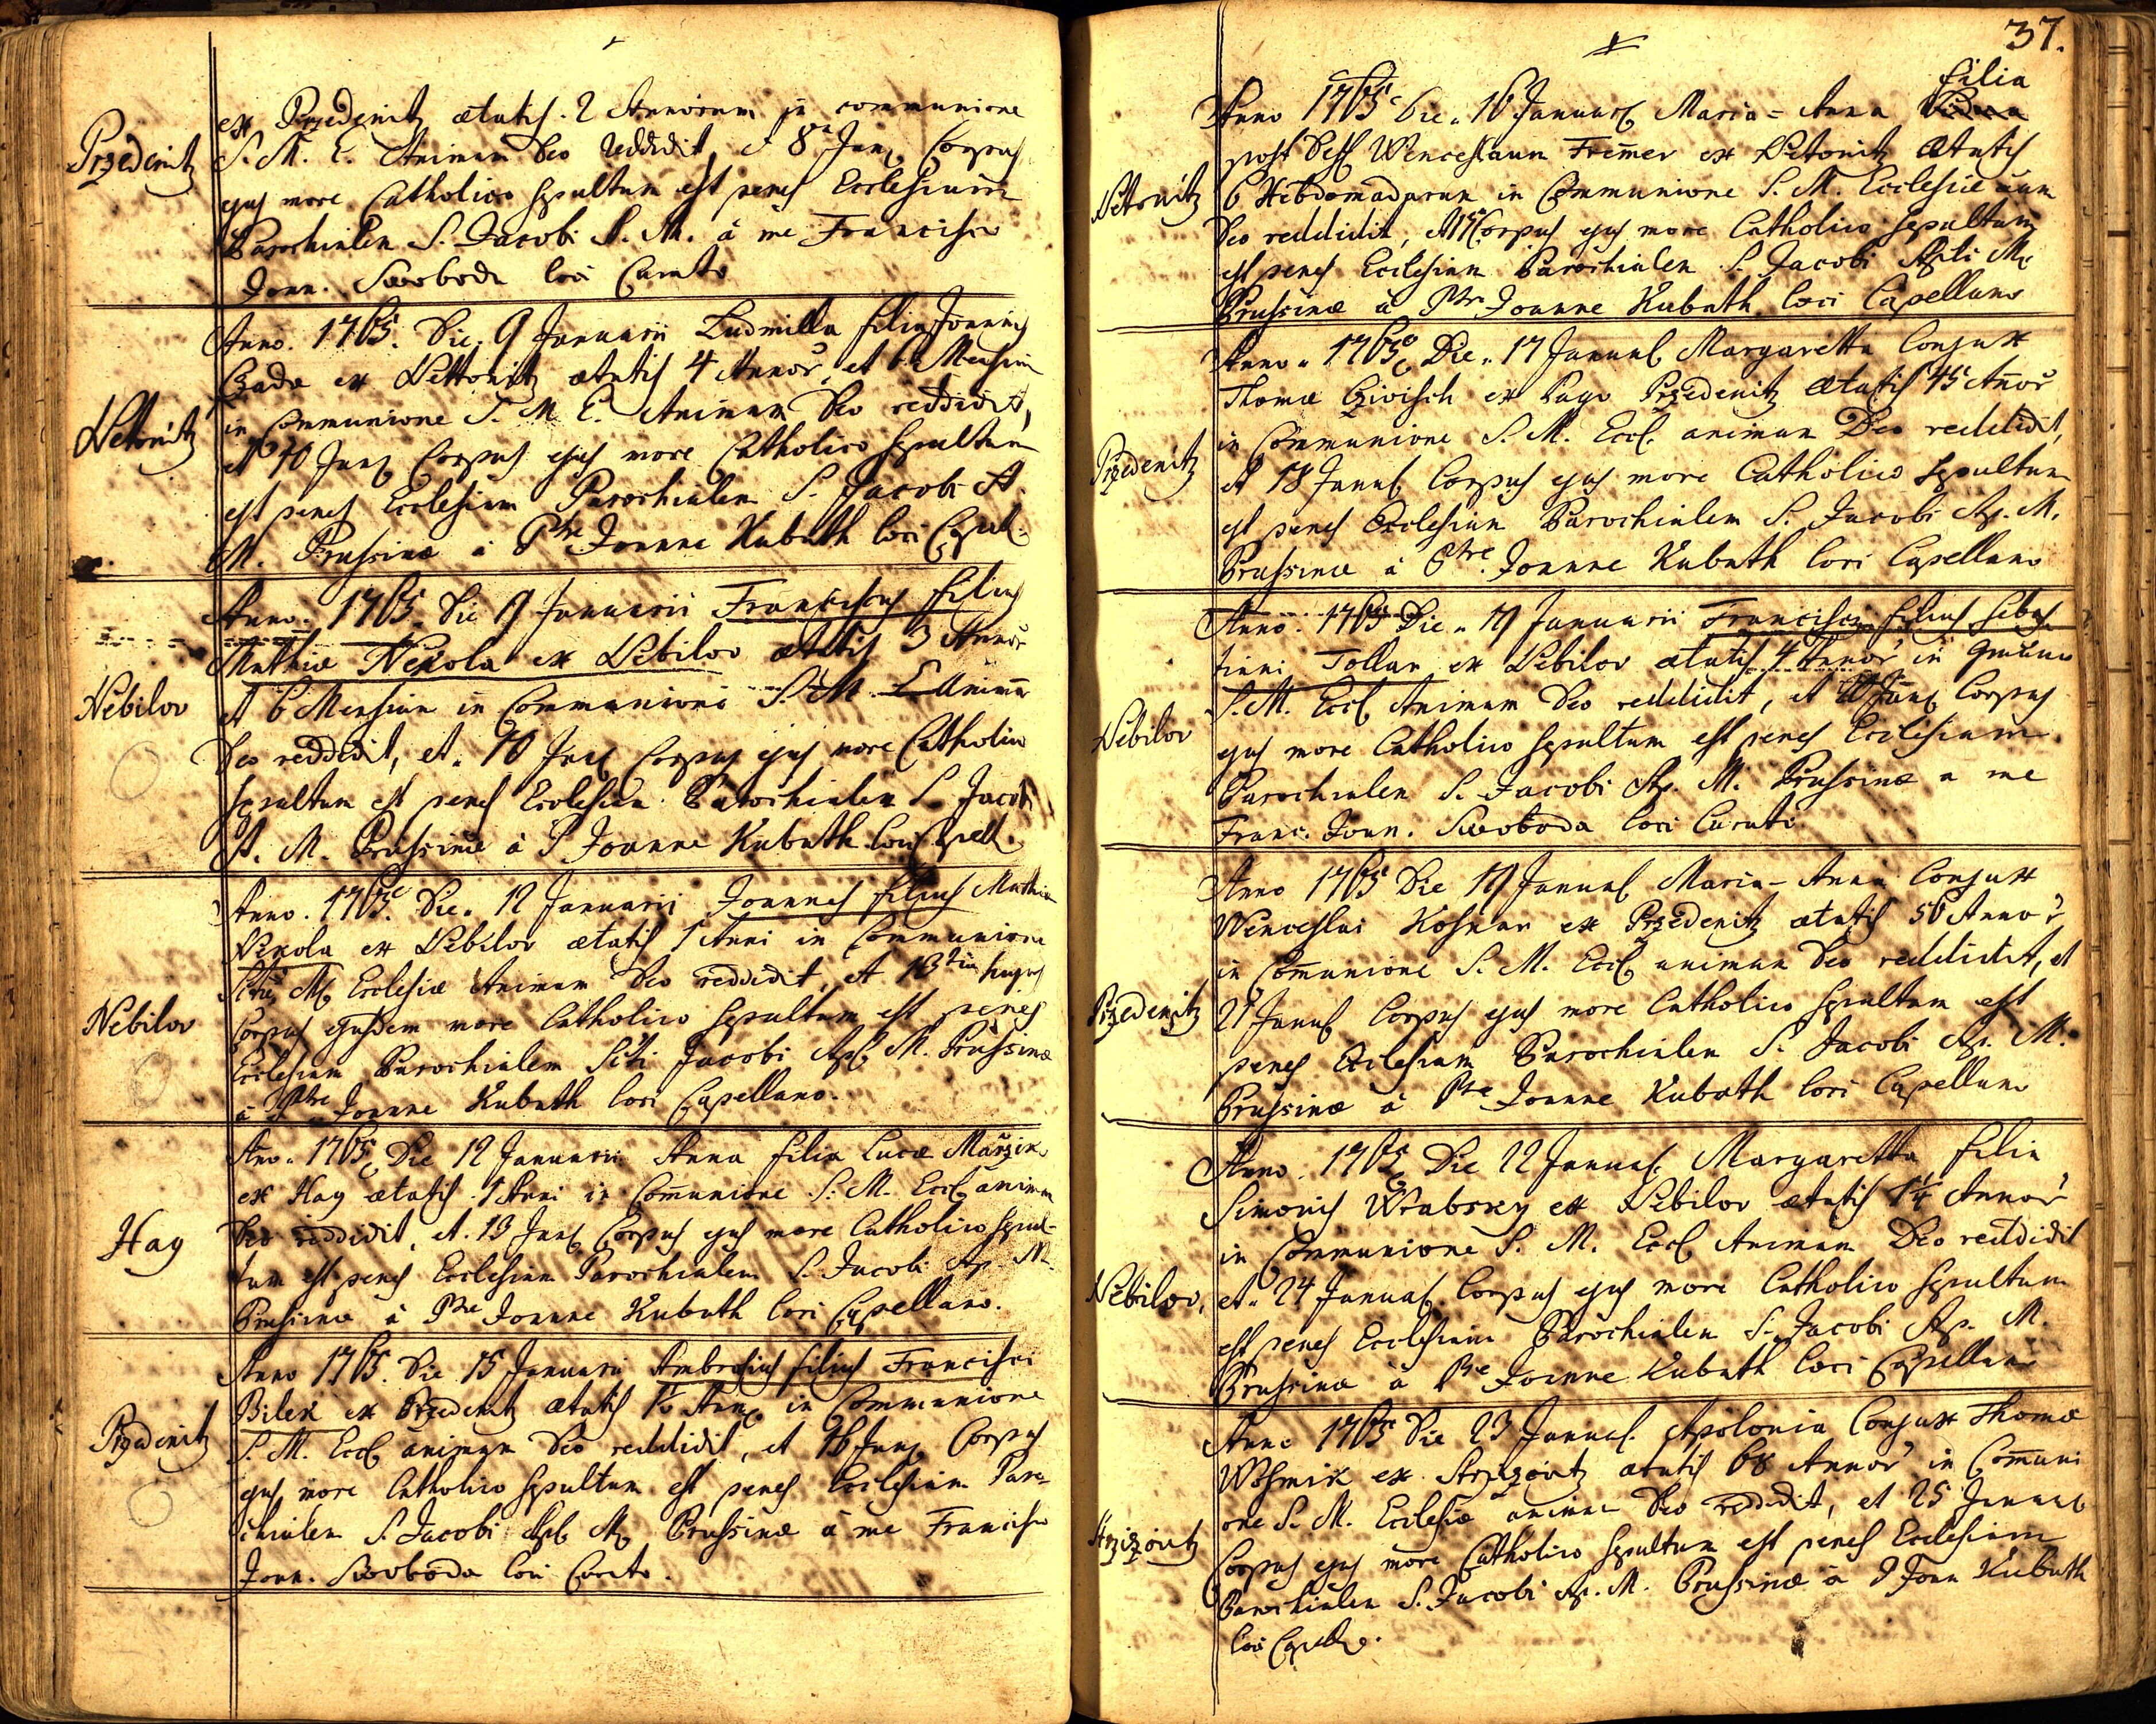 Przedenitz
ex Przedenitz ætatis 2 Annorum in communione
S. M. E. Animam Deo reddidit, et 8va Janu. Corpus
ejus more Catholico sepultum est penes Ecclesiam
Parochialem S. Jacobi A. M. à me Francisco
Joan. Swoboda loci Curato
Nettonitz
Anno. 1765. Die. 9 Januarii Ludmilla filia Joannis
Czada ex Nettonitz ætatis 4 Annor. et 6 Mensium
in Communione S. M. E. Animam Deo reddidit,
et 10 Janu. Corpus ejus more Catholico sepultum
est penes Ecclesiam Parochialem S. Jacobi A.
M. Prussinæ à Ptre Joanne Kubath loci Capel.
Nebilov
Anno. 1765. Die 9 Januarii Franciscus filius
Mathiæ Nekola ex Nebilov ætatis 3 Annor
et 6 Mensium in Communione S. M. E. Animam
Deo reddidit, et. 10 Janu. Corpus ejus more Catholico
sepultum est penes Ecclesiam Parochialem S. Jacobi
A. M. Prussinæ à P Joanne Kubath loci Capell.
Nebilov
Anno. 1765. Die. 12 Januarii Joannes filius Mathiæ
Nekola ex Nebilov ætatis 1 Anni in Communione
M. Ecclesiæ Animam Deo reddidit, et 13tia hujus
Corpus ejusdem more Catholico sepultum est penes
Ecclesiam Parochialem Scti Jacobi Apl. M. Prussinæ
à Ptre Joanne Kubath loci Capellano.
Hay
Ano. 1765 Die 12 Januarii Anna filia Lucæ Marzik
ex Hay ætatis 1 Anni in Comunione S. M. Eccl. animam
Deo reddidit, et. 13 Janu. Corpus ejus more Catholico sepul-
tum est penes Ecclesiam Parochialem S. Jacobi Ap. M.
Prussinæ à Ptre Joanne Kubath loci Capellano.
Przedenitz
Anno 1765. Die 15 Januarii Ambrosius filius Francisci
Bilek ex Przedenitz ætatis in Communione
S. M. Eccl. animam Deo reddidit, et 16 Janu. Corpus
ejus more Catholico sepultum est penes Ecclesiam Paro-
chialem S. Jacobi Apl. M. Prussinæ à me Francisco
Joan. Swoboda loci Curato.
37.
filia
Nettonitz
Anno 1765 Die. 16 Januar. Maria = Anna
post Def. Wenceslaum Fremer ex Nettonitz Ætatis
6 Hebdomadarum in Communione S. M. Ecclesiæ aam
Deo reddidit, et 17 Corpus ejus more Catholico sepultum
est penes Ecclesiam Parochialem S. Jacobi Apli M.
Prussinæ à Ptre Joanne Kubath loci Capellano
Przedenitz
Anno. 1765 Die. 17 Januar. Margaretta Conjux
Thomæ Cziwisch ex Pago Przedenitz ætatis 45 Anor
in Communione S. M. Eccl. animam Deo reddidit,
et 18 Janua. Corpus ejus more Catholico sepultum
est penes Ecclesiam Parochialem S. Jacobi Ap. M.
Prussinæ à Ptre. Joanne Kubath loci Capellano
Nebilov
Anno. 1765 Die. 19 Januarii Franciscus filius Sebas-
tiani Tollar ex Nebilov ætatis 4 Annor in
S. M. Eccl. Animam Deo reddidit, et Janu. Corpus
ejus more Catholico sepultum est penes Ecclesiam
Parochialem S. Jacobi Ap. M. Prussinæ a me
Franc. Joan. Swoboda loci Curato
Przedenitz
Anno 1765 Die 19 Januar. Maria-Anna Conjux
Wenceslai Kosnar ex Przedenitz ætatis 50 Annor
in Comunione S. M. Eccl. animam Deo reddidit, et
21 Janua. Corpus ejus more Catholico sepultum est
penes Ecclesiam Parochialem S. Jacobi Ap. M.
Prussinæ à Ptre Joanne Kubath loci Capellano
Nebilov,
Anno. 1765 Die 22 Januar. Margaretta filia
Simonis Wrabsky ex Nebilov ætatis Annor
in Communione S. M. Eccl. Animam Deo reddidit
et. 24 Januar. Corpus ejus more Catholico sepultum
est penes Ecclesiam Parochialem S. Jacobi Ap. M.
Prussinæ à Ptre Joanne Kubath loci Capellano
Anno 1765 Die 23 Januar. Apolonia Conjux Thomæ
Wosmik ex ætatis 68 Annor in Comuni
one S. M. Ecclesiæ animam Deo reddidit, et 25 Januar
Corpus ejus more Catholico sepultum est penes Ecclesiam
Parochialem S. Jacobi Ap. M. Prussinæ à P Joan Kubath
loci Capello.